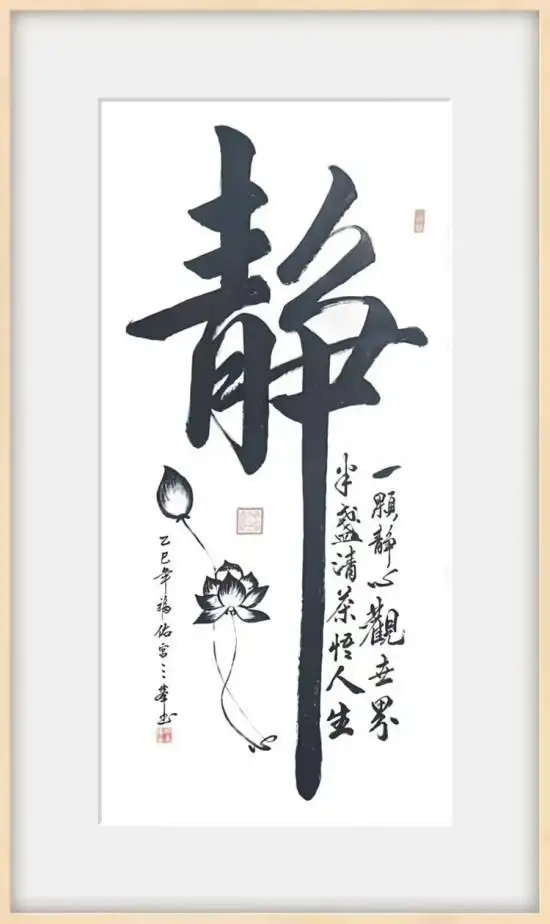 静
一顆静心觀世界
半盞清茶悟人生
乙巳年福佑宮三